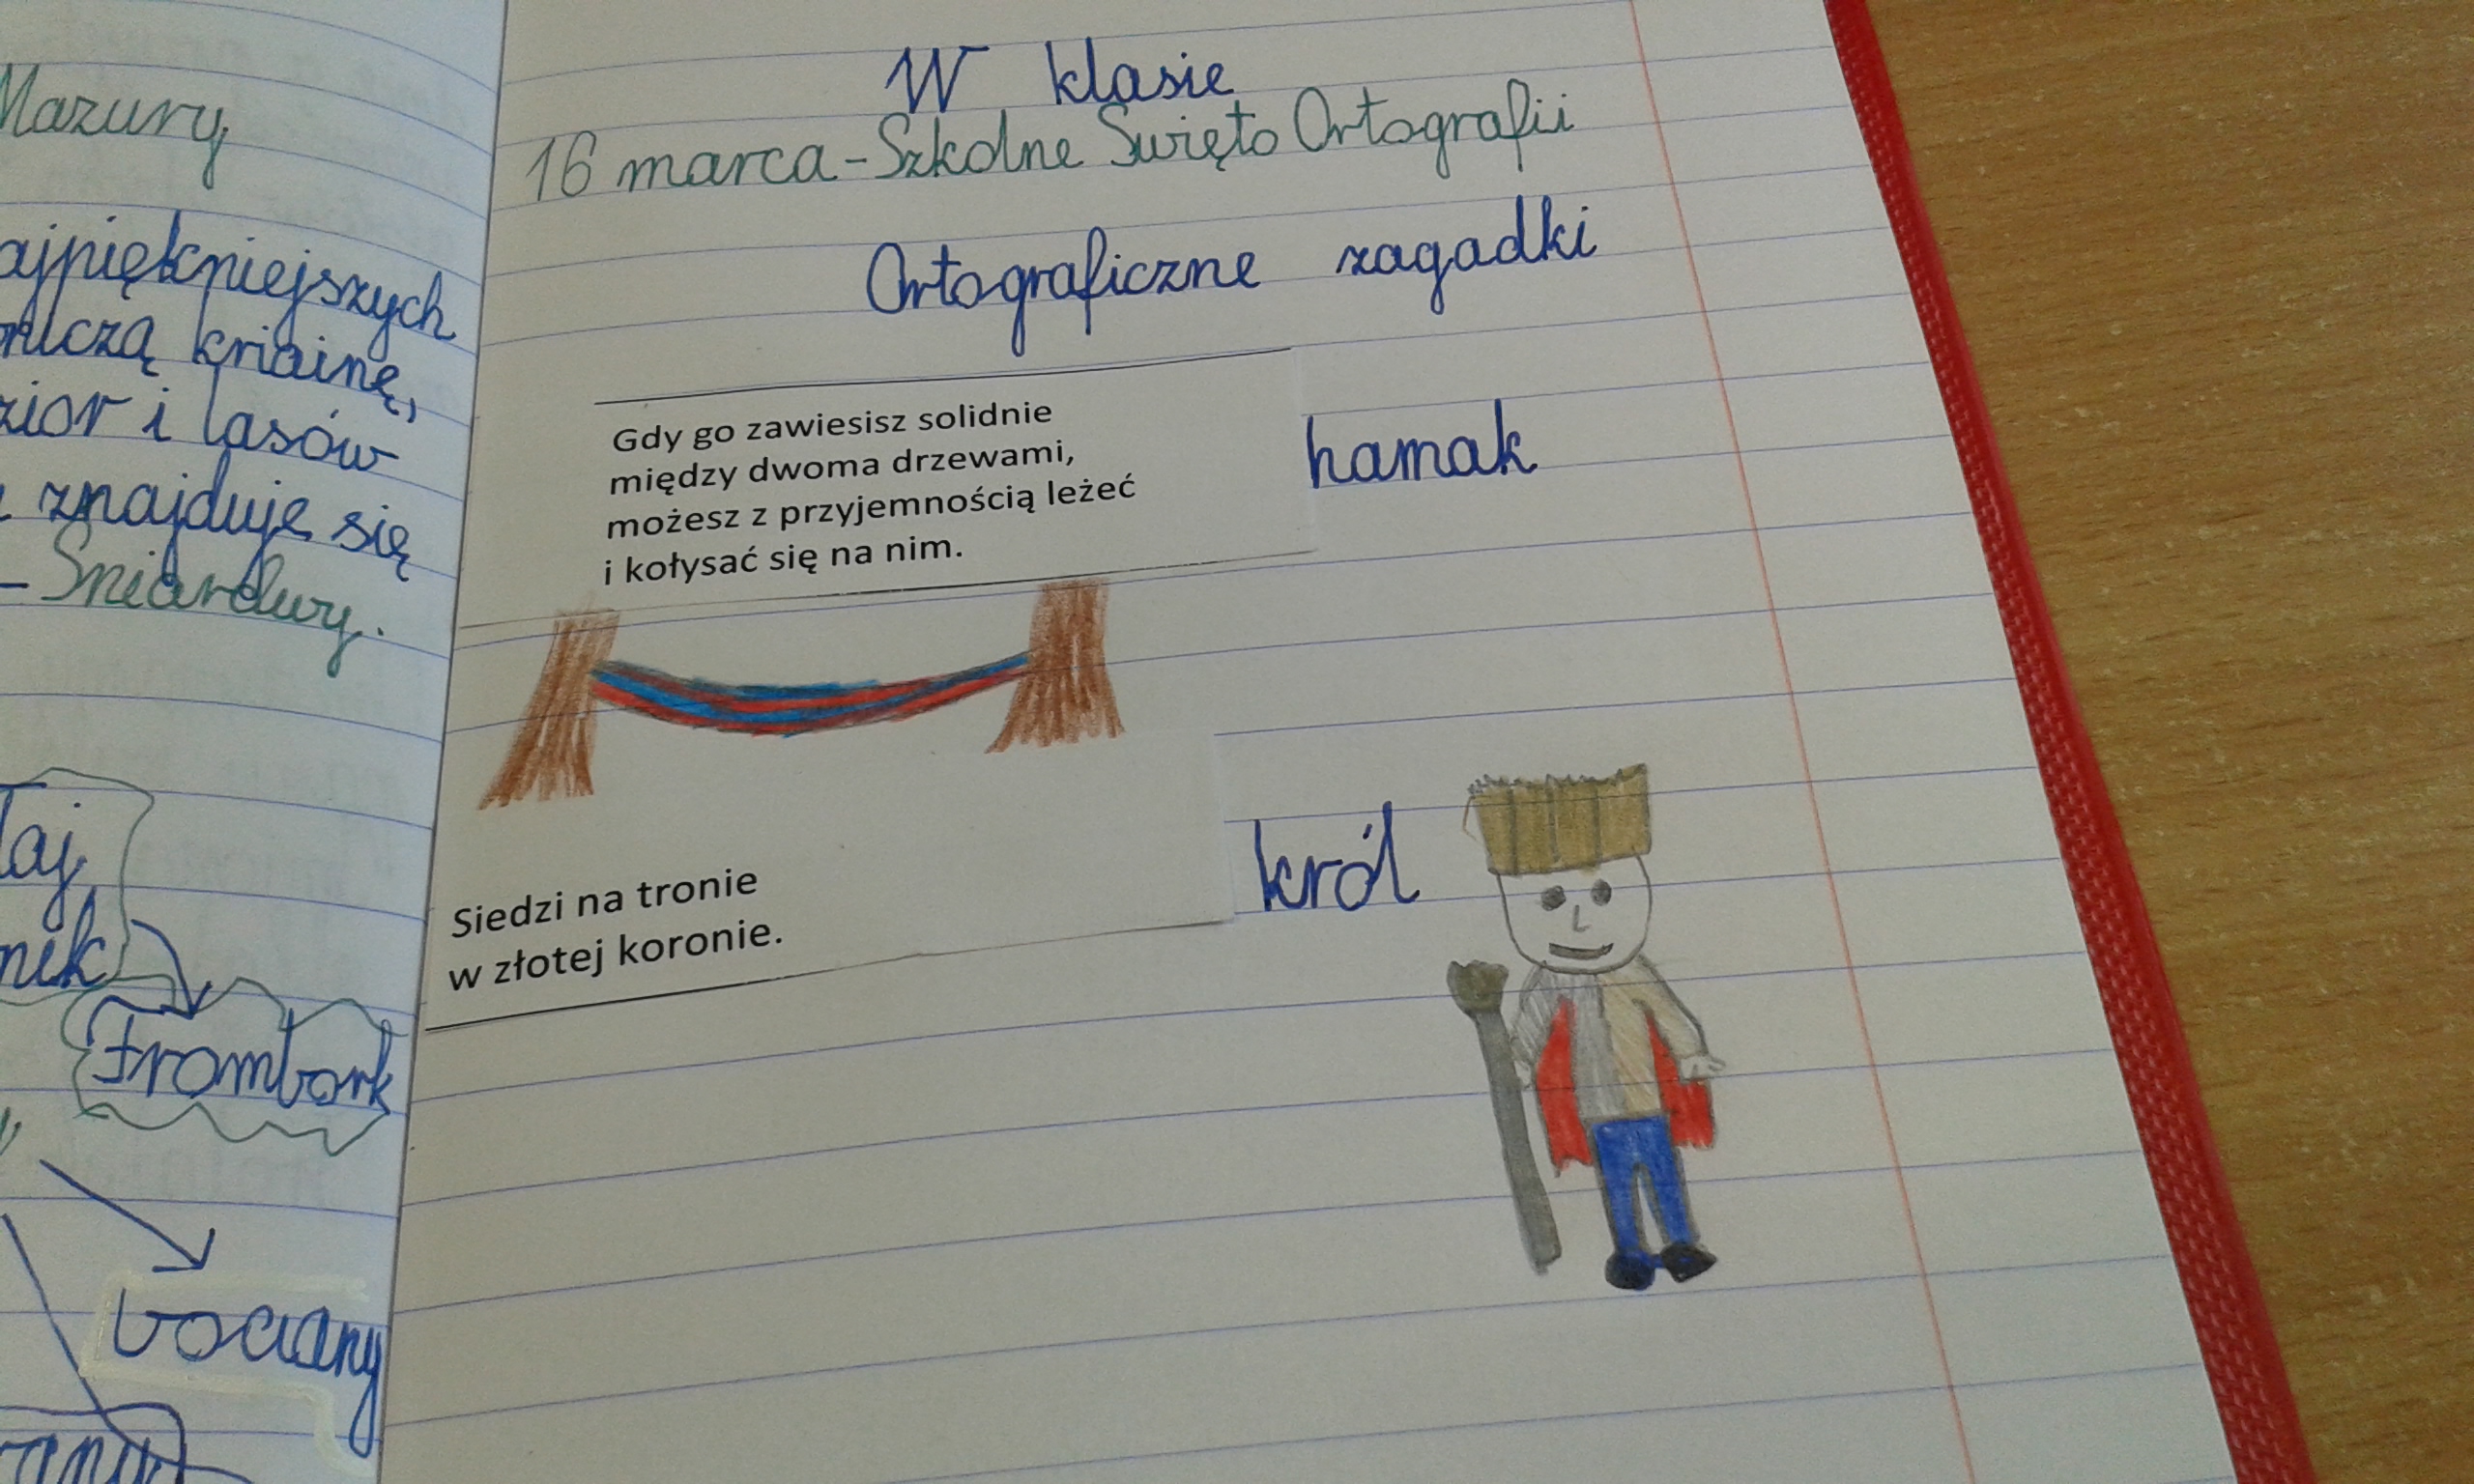 Mazury
ajpiękniejszych
krainę,
zior i lasów
znajduje się
- Śniardwy.
Frombork
bociany
W klasie
16 marca - Szkolne Święto Ortografii
Ortograficzne zagadki
Gdy go zawiesisz solidnie
między dwoma drzewami,
możesz z przyjemnością leżeć
i kołysać się na nim.
hamak
Siedzi na tronie
w złotej koronie.
król